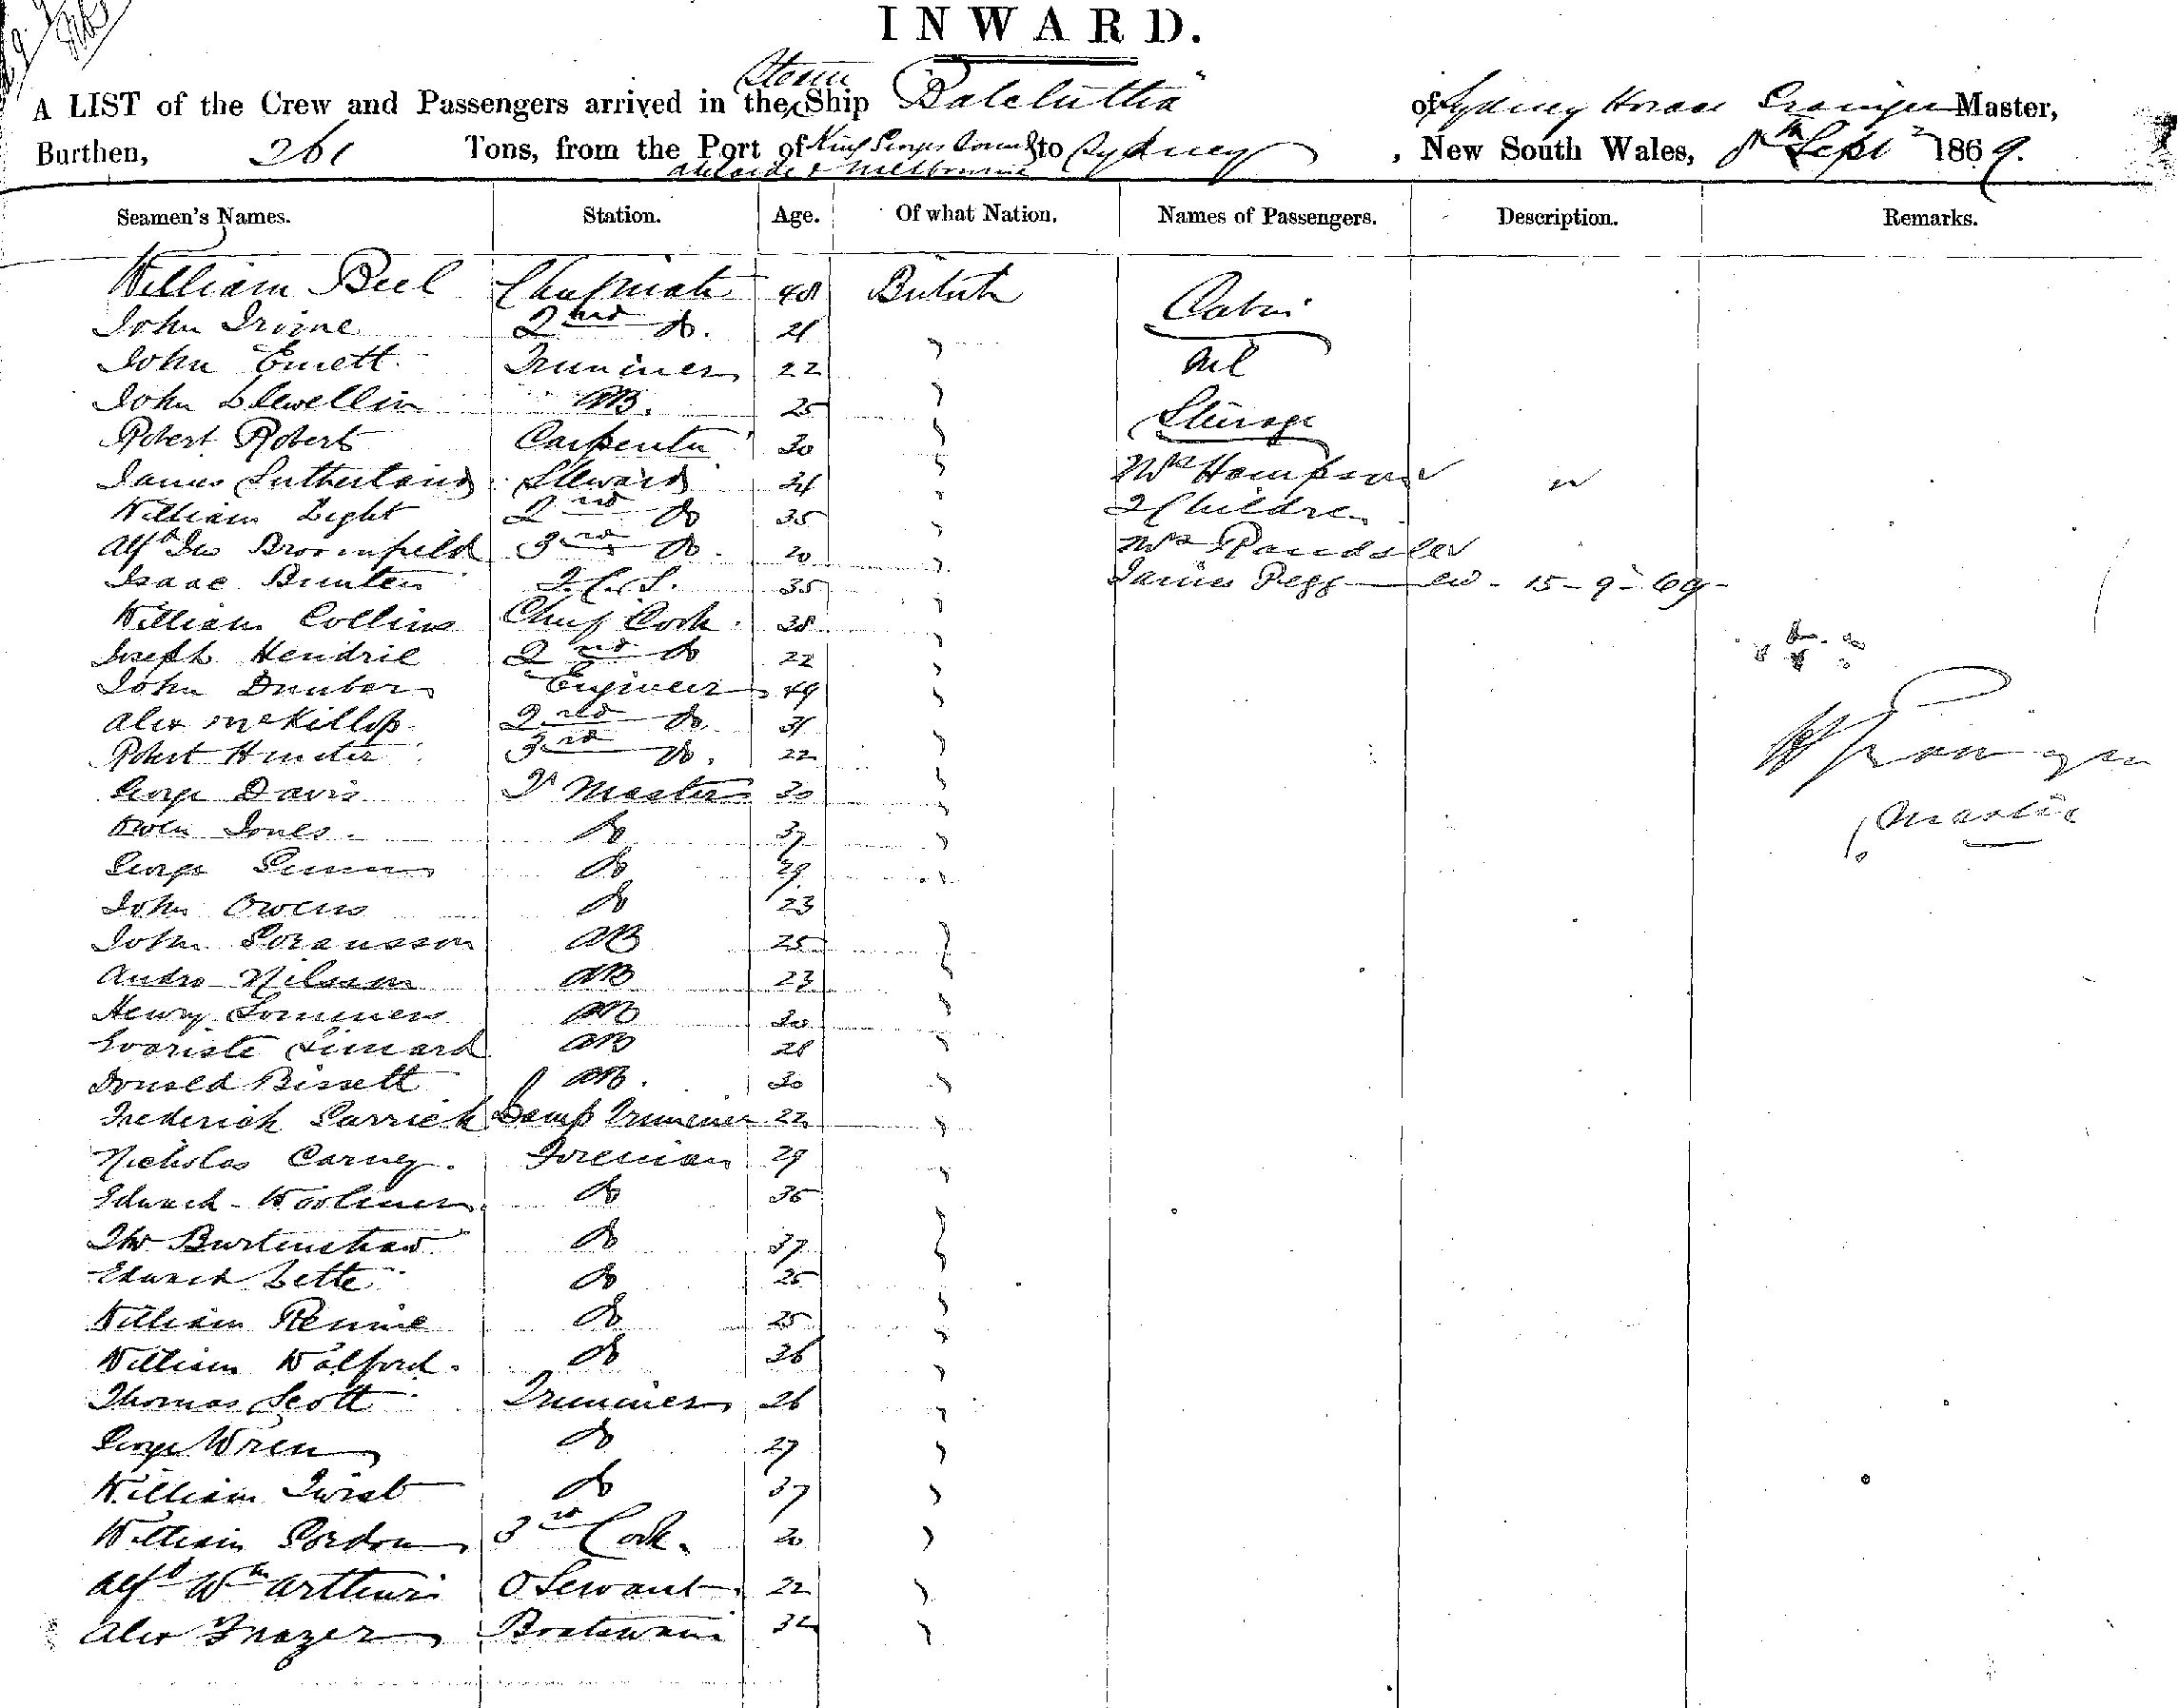 INWARD.
A LIST of the Crew and Passengers arrived in the Steam Ship "Balclutha" of Sydney Horace Master,
Burthen, 261 Tons, from the Port of King Georges Sound to Sydney, New South Wales, 8th Sept 1869.
Adelaide & Melbourne
Seamen's Names. Station. Age. Of what Nation. Names of Passengers. Description. Remarks.
William Bell Chief Mate 40 British Cabin
John Irvine 2nd do. 21
John Emett Trimmer 22 Nil
John Llewellin AB. 25 Steerage
Robert Roberts Carpenter 30
James Sutherland Steward 34 Mrs Hompson
William Light 2nd do 35 2 Children
Alfd Broomfield 3rd do. 20 Mrs
Isaac Bunten 35 James Pegg 15-9-69-
William Collins Chief Cook. 38
Joseph Hendrie 2nd do 22
John Dunbar Engineer 49
Alex McKillop 2nd do. 31
Robert Hunter 3rd do. 22
George Davis Qr Master 30
Owen Jones. do 37
George do 29
John Owens do 23
John AB 25
Andro Nilsson AB 23
Henry Sommers AB 30
Evariste AB 28
Donald Bissett AB. 30
Frederick Lamp Trimmer 22
Nicholas Carney. Fireman 29
Edward do 36
Thos Burtenshaw do 37
Edward Lette do 25
William Rennie do 25
William Walford. do 36
Thomas Scott Trimmer 26
George Wren do 27
William Twist do 37
William Gordon 3rd Cook. 20
Alfd Wm Arthur O Servant 22
Alex Frazer Boatswain 32
Master